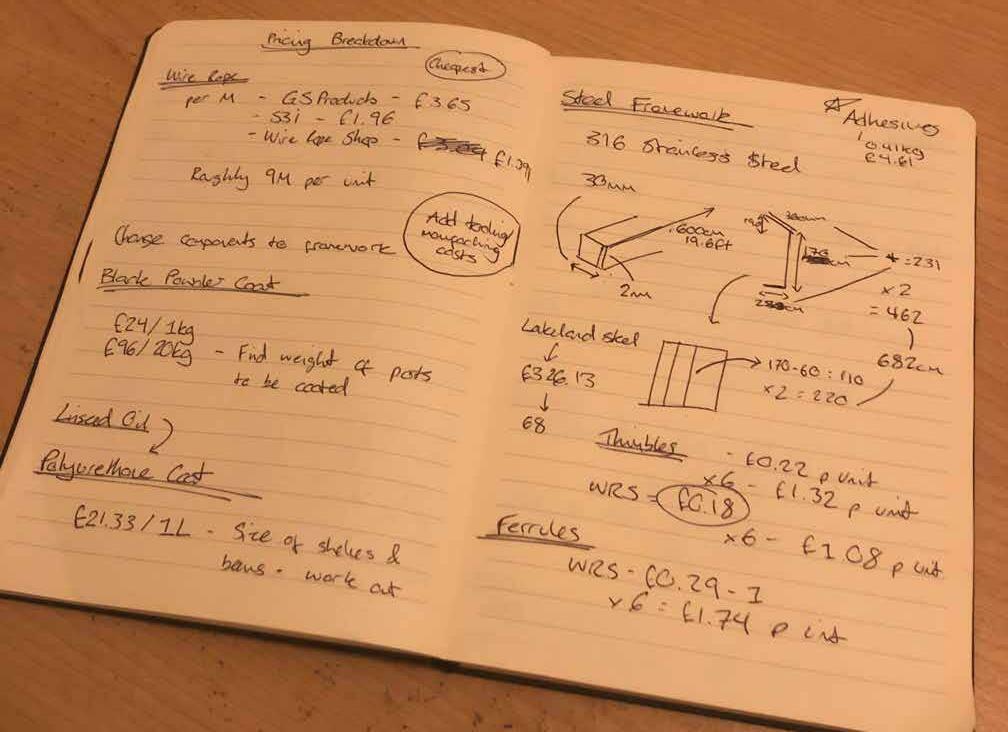 Pricing Breakdown
Cheapest
Wire Rope
per M - GS Products - £3.65
- S3i - £1.96
- Wire Rope Shop - £1.39
Roughly 9M per unit
Add tooling/
costs
Change components to framework
Black Powder Coat
£24/1kg
£96/20kg - Find weight of parts
to be coated
Linseed Oil
Polyurethane Coat
£21.33/1L - Size of shelves &
beams - work out
Steel Framework
Adhesives
0.41kg
£4.61
316 Stainless Steel
30mm
600cm
19.6ft
2mm
170
= 231
x 2
= 462
682cm
Lakeland steel
£326.13
68
170-60 = 110
x2 = 220
Thimbles - £0.22 p unit
x6 - £1.32 p unit
WRS = £0.18
x6 - £1.08 p unit
Ferrules
WRS - £0.29 - 1
x6 = £1.74 p unit